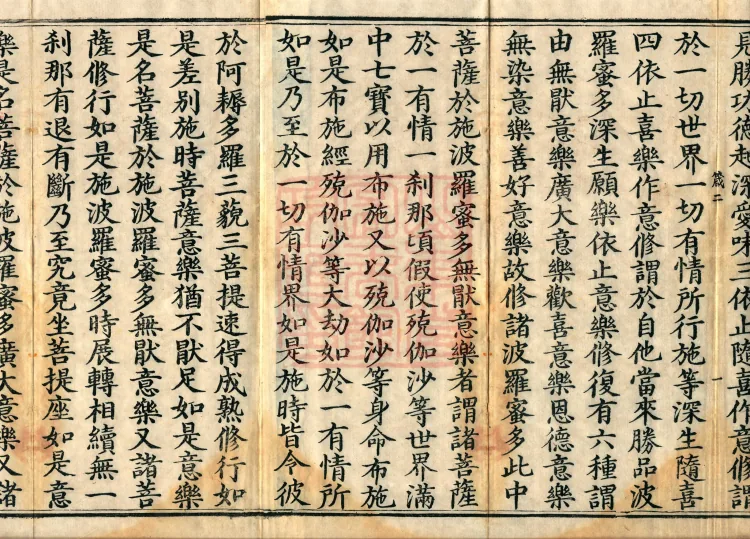 是勝功德起深愛味三依止隨喜作意修謂
箴二 一
於一切世界一切有情所行施等深生隨喜
四依止喜樂作意修謂於自他當來勝品波
羅蜜多深生願樂依止意樂修復有六種謂
由無猒意樂廣大意樂歡喜意樂恩德意樂
無染意樂善好意樂故修諸波羅蜜多此中
菩薩於施波羅蜜多無猒意樂者謂諸菩薩
於一有情一剎那頃假使殑伽沙等世界滿
中七寶以用布施又以殑伽沙等身命布施
如是布施經殑伽沙等大劫如於一有情所
如是乃至於一切有情界如是施時皆令彼
於阿耨多羅三藐三菩提速得成熟修行如
是差別施時菩薩意樂猶不猒足如是意樂
是名菩薩於施波羅蜜多無猒意樂又諸菩
薩修行如是施波羅蜜多時展轉相續無一
剎那有退有斷乃至究竟坐菩提座如是意
樂是名菩薩於施波羅蜜多廣大意樂又諸